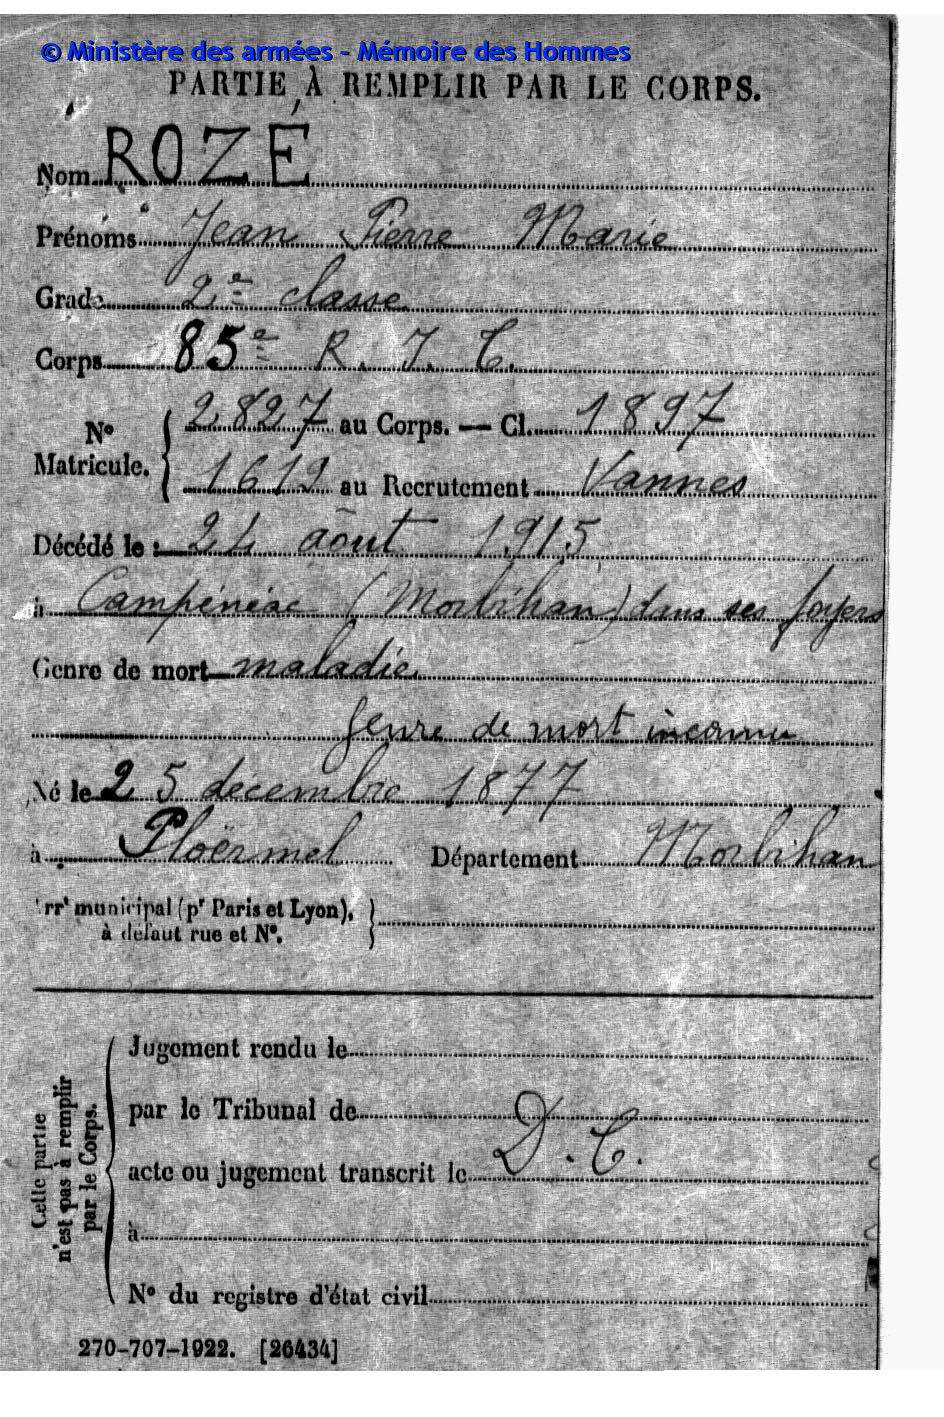 © Ministère des armées - Mémoire des Hommes
PARTIE À REMPLIR PAR LE CORPS.
Nom ROZÉ
Prénoms Jean Pierre Marie
Grade 2e classe
Corps 85e R. I. T.
No Matricule. 2827 au Corps. — Cl. 1897
1619 au Recrutement Vannes
Décédé le : 24 août 1915
à Campénéac (Morbihan) dans ses foyers
Genre de mort maladie
genre de mort inconnu
Né le 25 décembre 1877
à Ploërmel Département Morbihan
Arrt municipal (pr Paris et Lyon),
à défaut rue et No.
Cette partie n'est pas à remplir par le Corps.
Jugement rendu le
par le Tribunal de
D. C.
acte ou jugement transcrit le
à
No du registre d'état civil
270-707-1922. [26434]